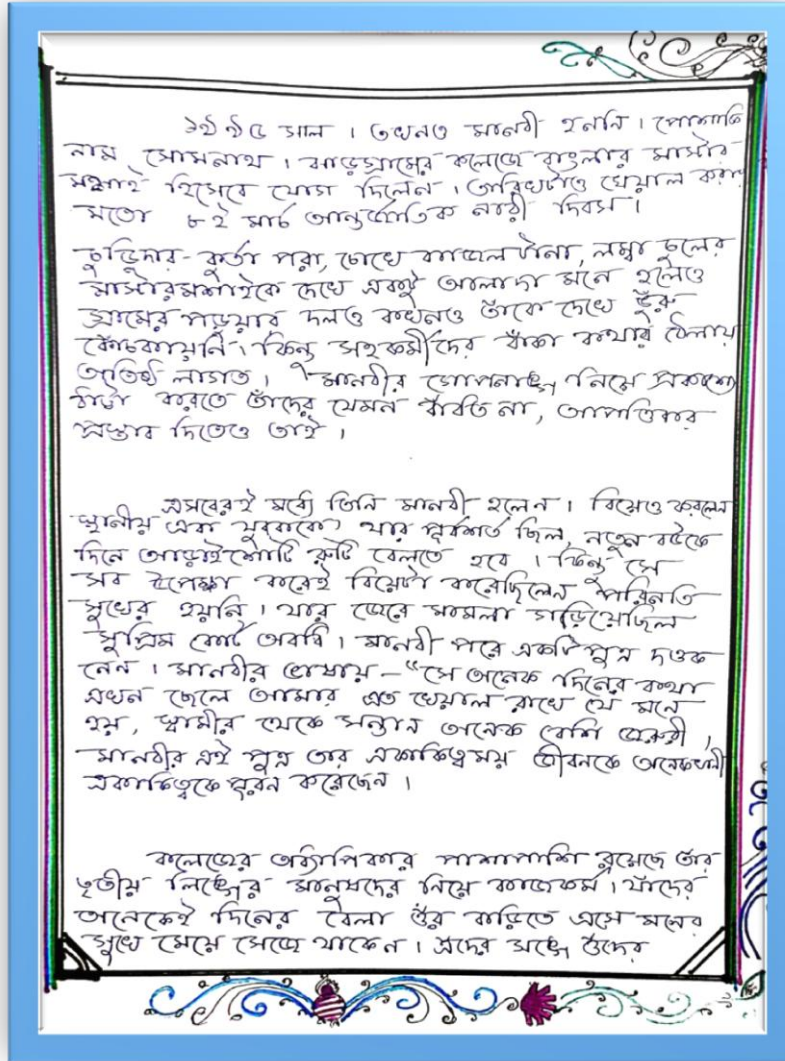 ১৯৯৫ সাল । তখনও মানবী হননি । পোশাকি
নাম সোমনাথ । ঝাড়গ্রামের কলেজে বাংলার মাস্টার
মশাই হিসেবে যোগ দিলেন । তারিখটাও খেয়াল করার
মতো ৮ই মার্চ আন্তর্জাতিক নারী দিবস ।
চুড়িদার-কুর্তা পরা, চোখে কাজল টানা, লম্বা চুলের
মাস্টারমশাইকে দেখে একটু আলাদা মনে হলেও
গ্রামের পড়ুয়ার দলও কখনও তাঁকে দেখে ভুঁরু
কোঁচকায়নি । কিন্তু সহকর্মীদের বাঁকা কথার ঠেলায়
অতিষ্ঠ লাগত । মানবীর গোপনাঙ্গ নিয়ে প্রকাশ্যে
ঠাট্টা করতে তাঁদের যেমন বাঁধত না, আপত্তিকর
প্রস্তাব দিতেও তাই ।
এসবেরই মধ্যে তিনি মানবী হলেন । বিয়েও করলেন
স্থানীয় এক যুবককে, যার পূর্বশর্ত ছিল, নতুন বউকে
দিনে আড়াইশোটি রুটি বেলতে হবে । কিন্তু সে
সব উপেক্ষা করেই বিয়েটা করেছিলেন পরিনতি
সুখের হয়নি । যার জেরে মামলা গড়িয়েছিল
সুপ্রিম কোর্ট অবধি । মানবী পরে একটি পুত্র দওক
নেন । মানবীর ভাষায় – “সে অনেক দিনের কথা
এখন ছেলে আমার এত খেয়াল রাখে যে মনে
হয়, স্বামীর থেকে সন্তান অনেক বেশি জরুরী ,
মানবীর এই পুত্র তার একাকিত্বময় জীবনকে অনেকখানী
একাকিত্বকে পূরন করেছেন ।
কলেজের অধ্যাপিকার পাশাপাশি রয়েছে তাঁর
তৃতীয় লিঙ্গের মানুষদের নিয়ে কাজকর্ম । যাঁদের
অনেকেই দিনের বেলা ওঁর বাড়িতে এসে মনের
সুখে মেয়ে সেজে থাকেন । এদের সঙ্গে ওঁদের